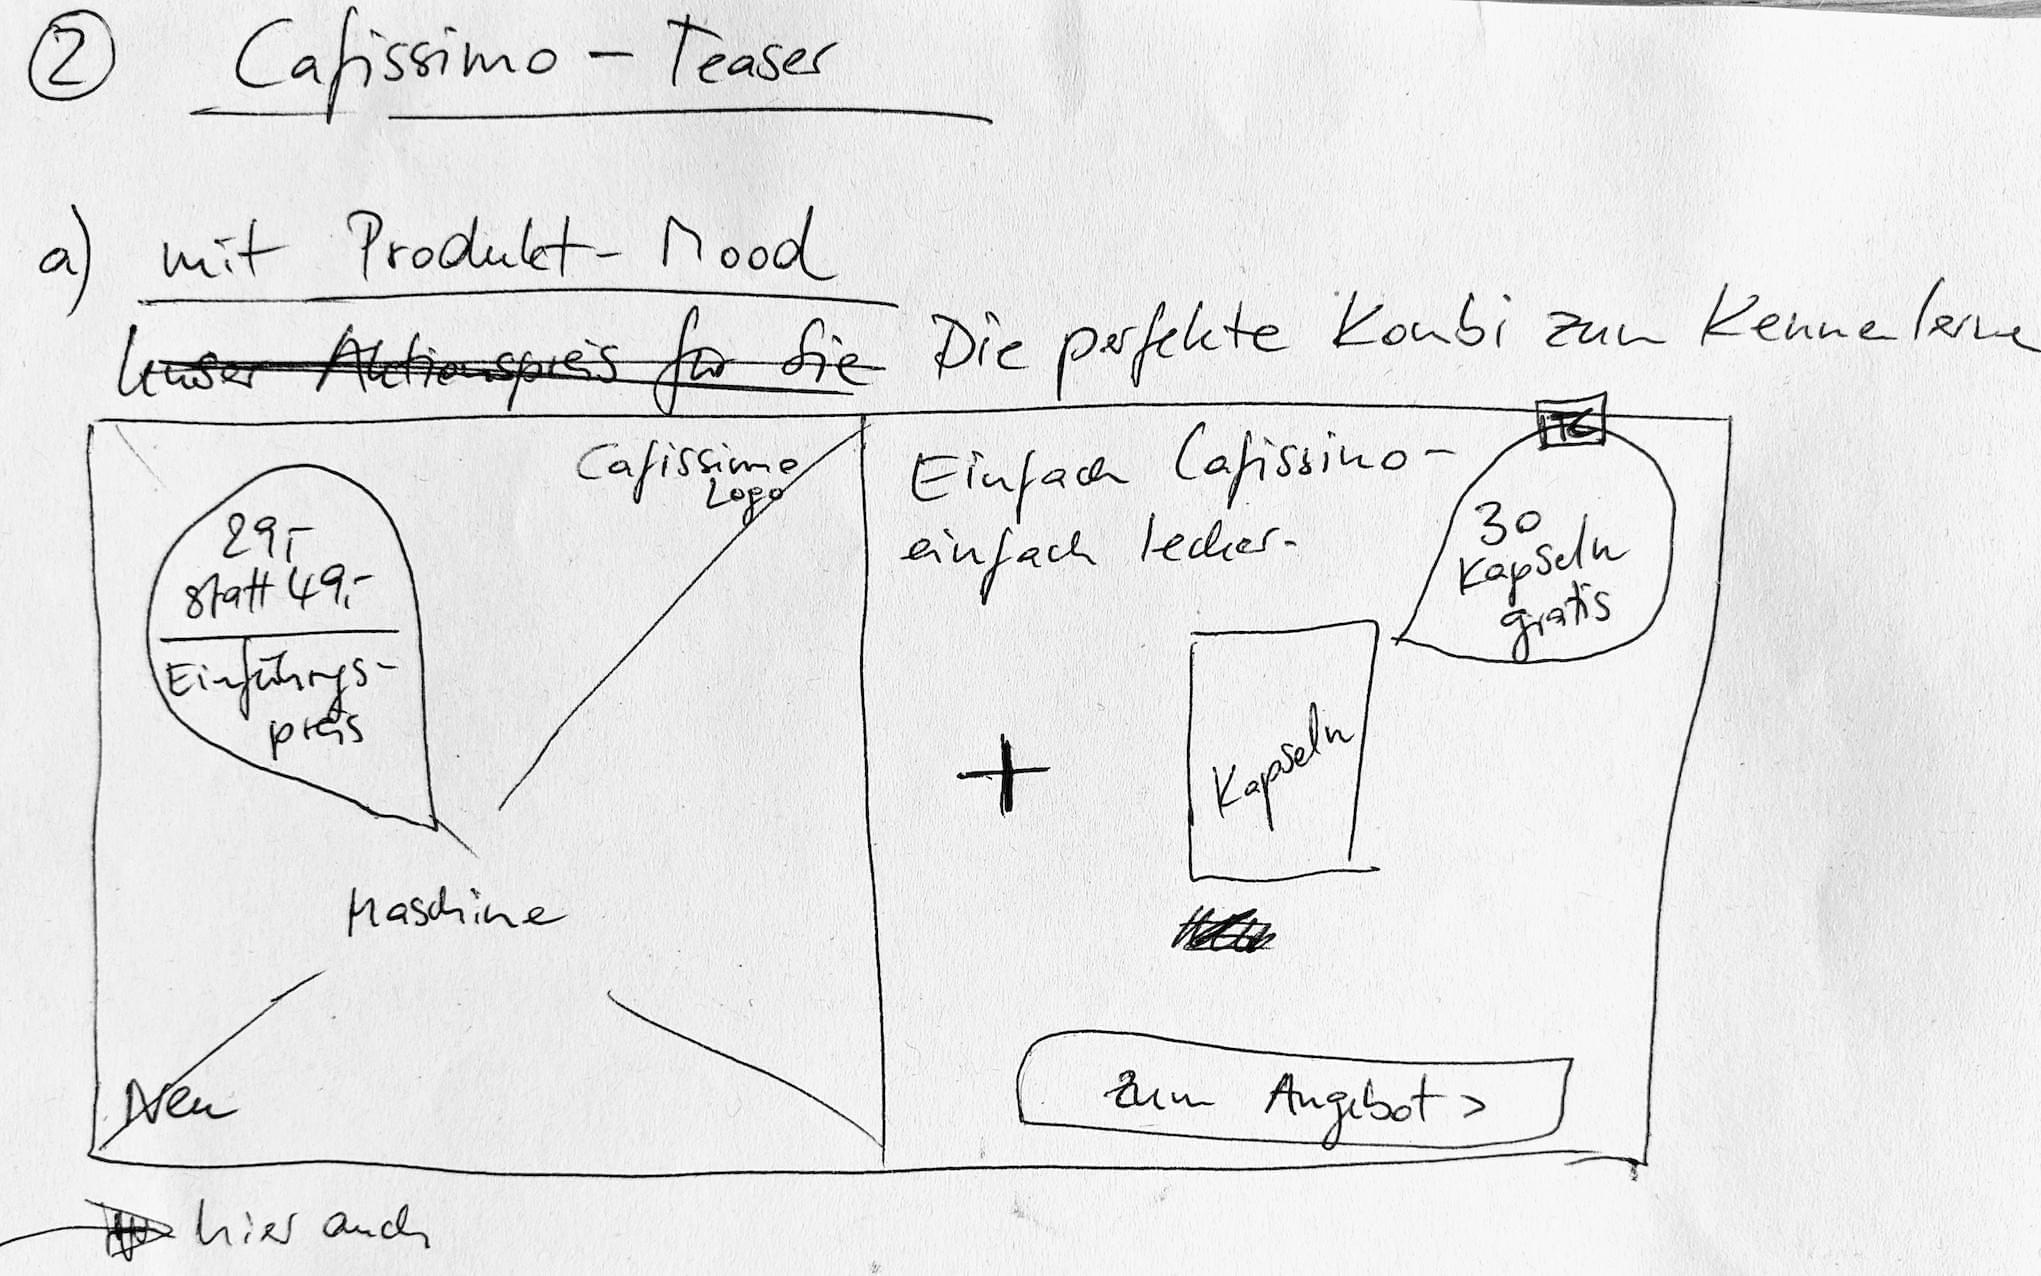 ② Cafissimo - Teaser
a) mit Produkt-Mood
Unser Aktionspreis für die Die perfekte Kombi zum Kennenlerne
Cafissimo
Logo
29,-
statt 49,-
Einführungs-
preis
Maschine
Neu
Einfach Cafissimo-
einfach lecker.
30
Kapseln
gratis
+
Kapseln
Zum Angebot >
hier auch